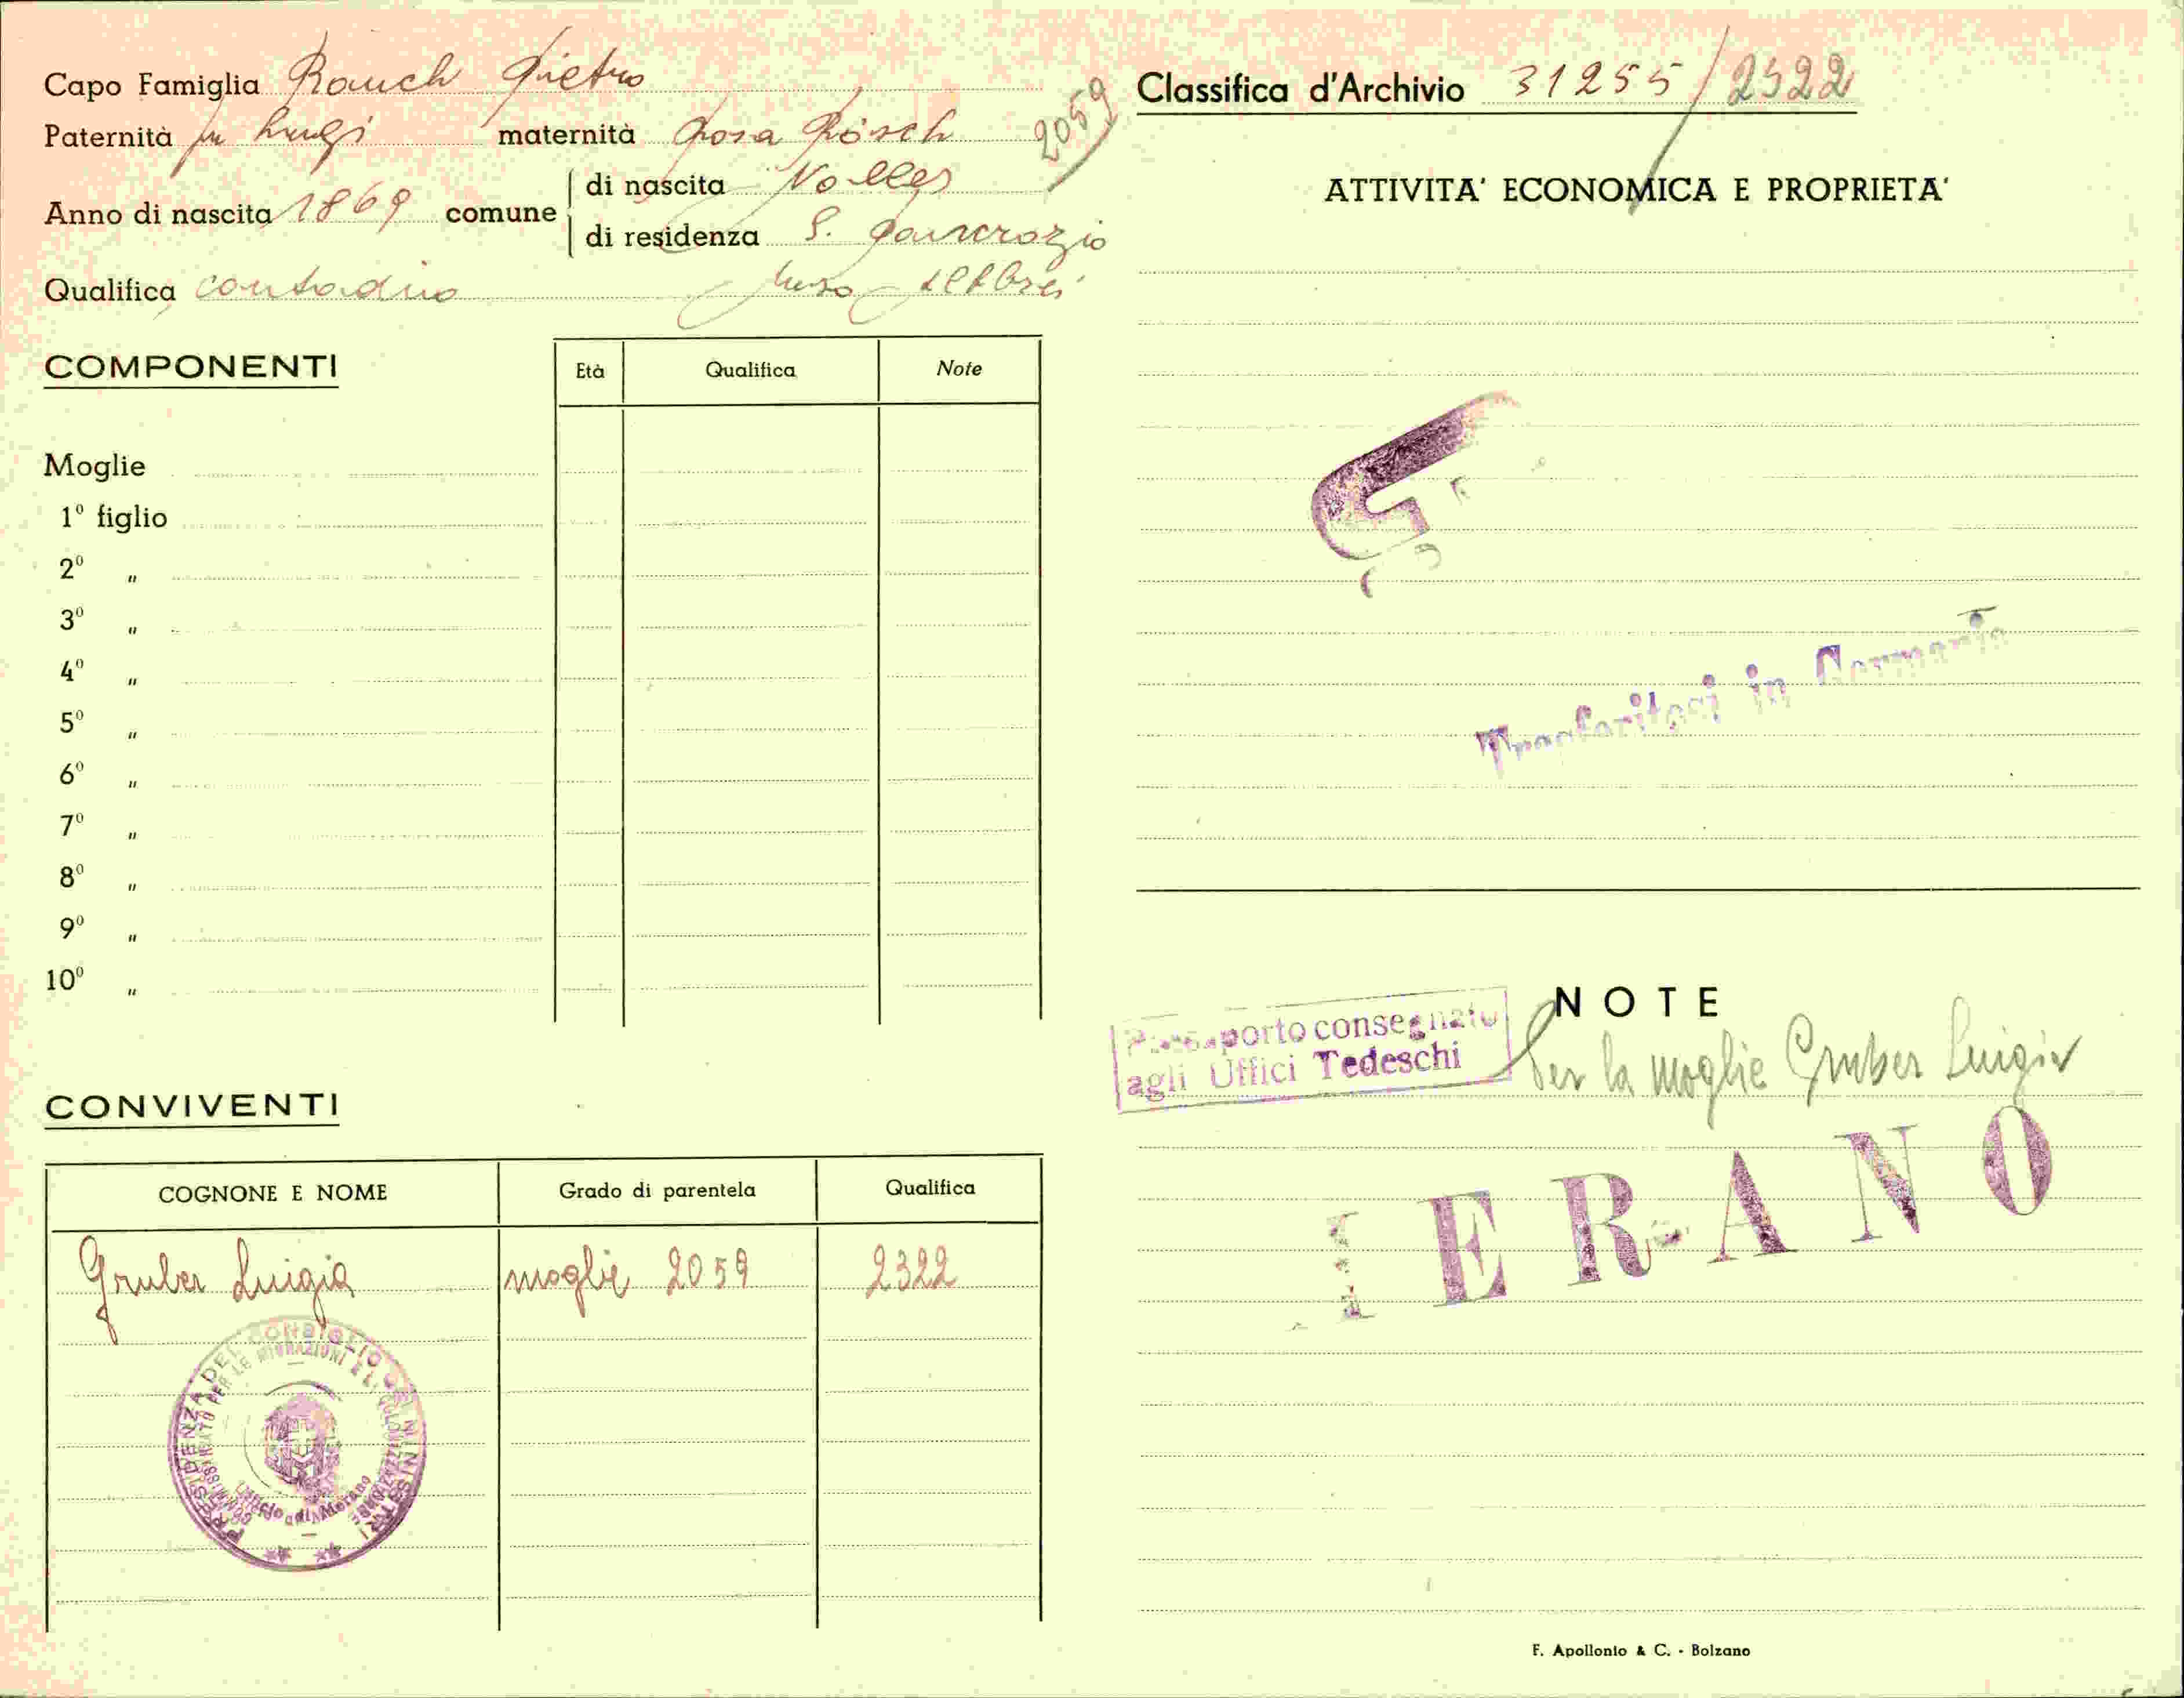 Capo Famiglia Rauch Pietro
Paternità fu Luigi maternità Rosa Rösch 2059
Anno di nascita 1869 comune
di nascita Nalles
di residenza S. Pancrazio
Qualifica contadino
COMPONENTI
Età Qualifica Note
Moglie
1º figlio
2º "
3º "
4º "
5º "
6º "
7º "
8º "
9º "
10º "
CONVIVENTI
COGNONE E NOME Grado di parentela Qualifica
Gruber Luigia moglie 2059 2322
PRESIDENZA DEL CONSIGLIO DEI MINISTRI
COMMISSARIATO PER LE MIGRAZIONI E LA COLONIZZAZIONE
Ufficio di Merano
Classifica d'Archivio 31255/2322
ATTIVITA' ECONOMICA E PROPRIETA'
Trasferitosi in Germania
NOTE
Passaporto consegnato
agli Uffici Tedeschi
Per la moglie Gruber Luigia
MERANO
F. Apollonio & C. - Bolzano